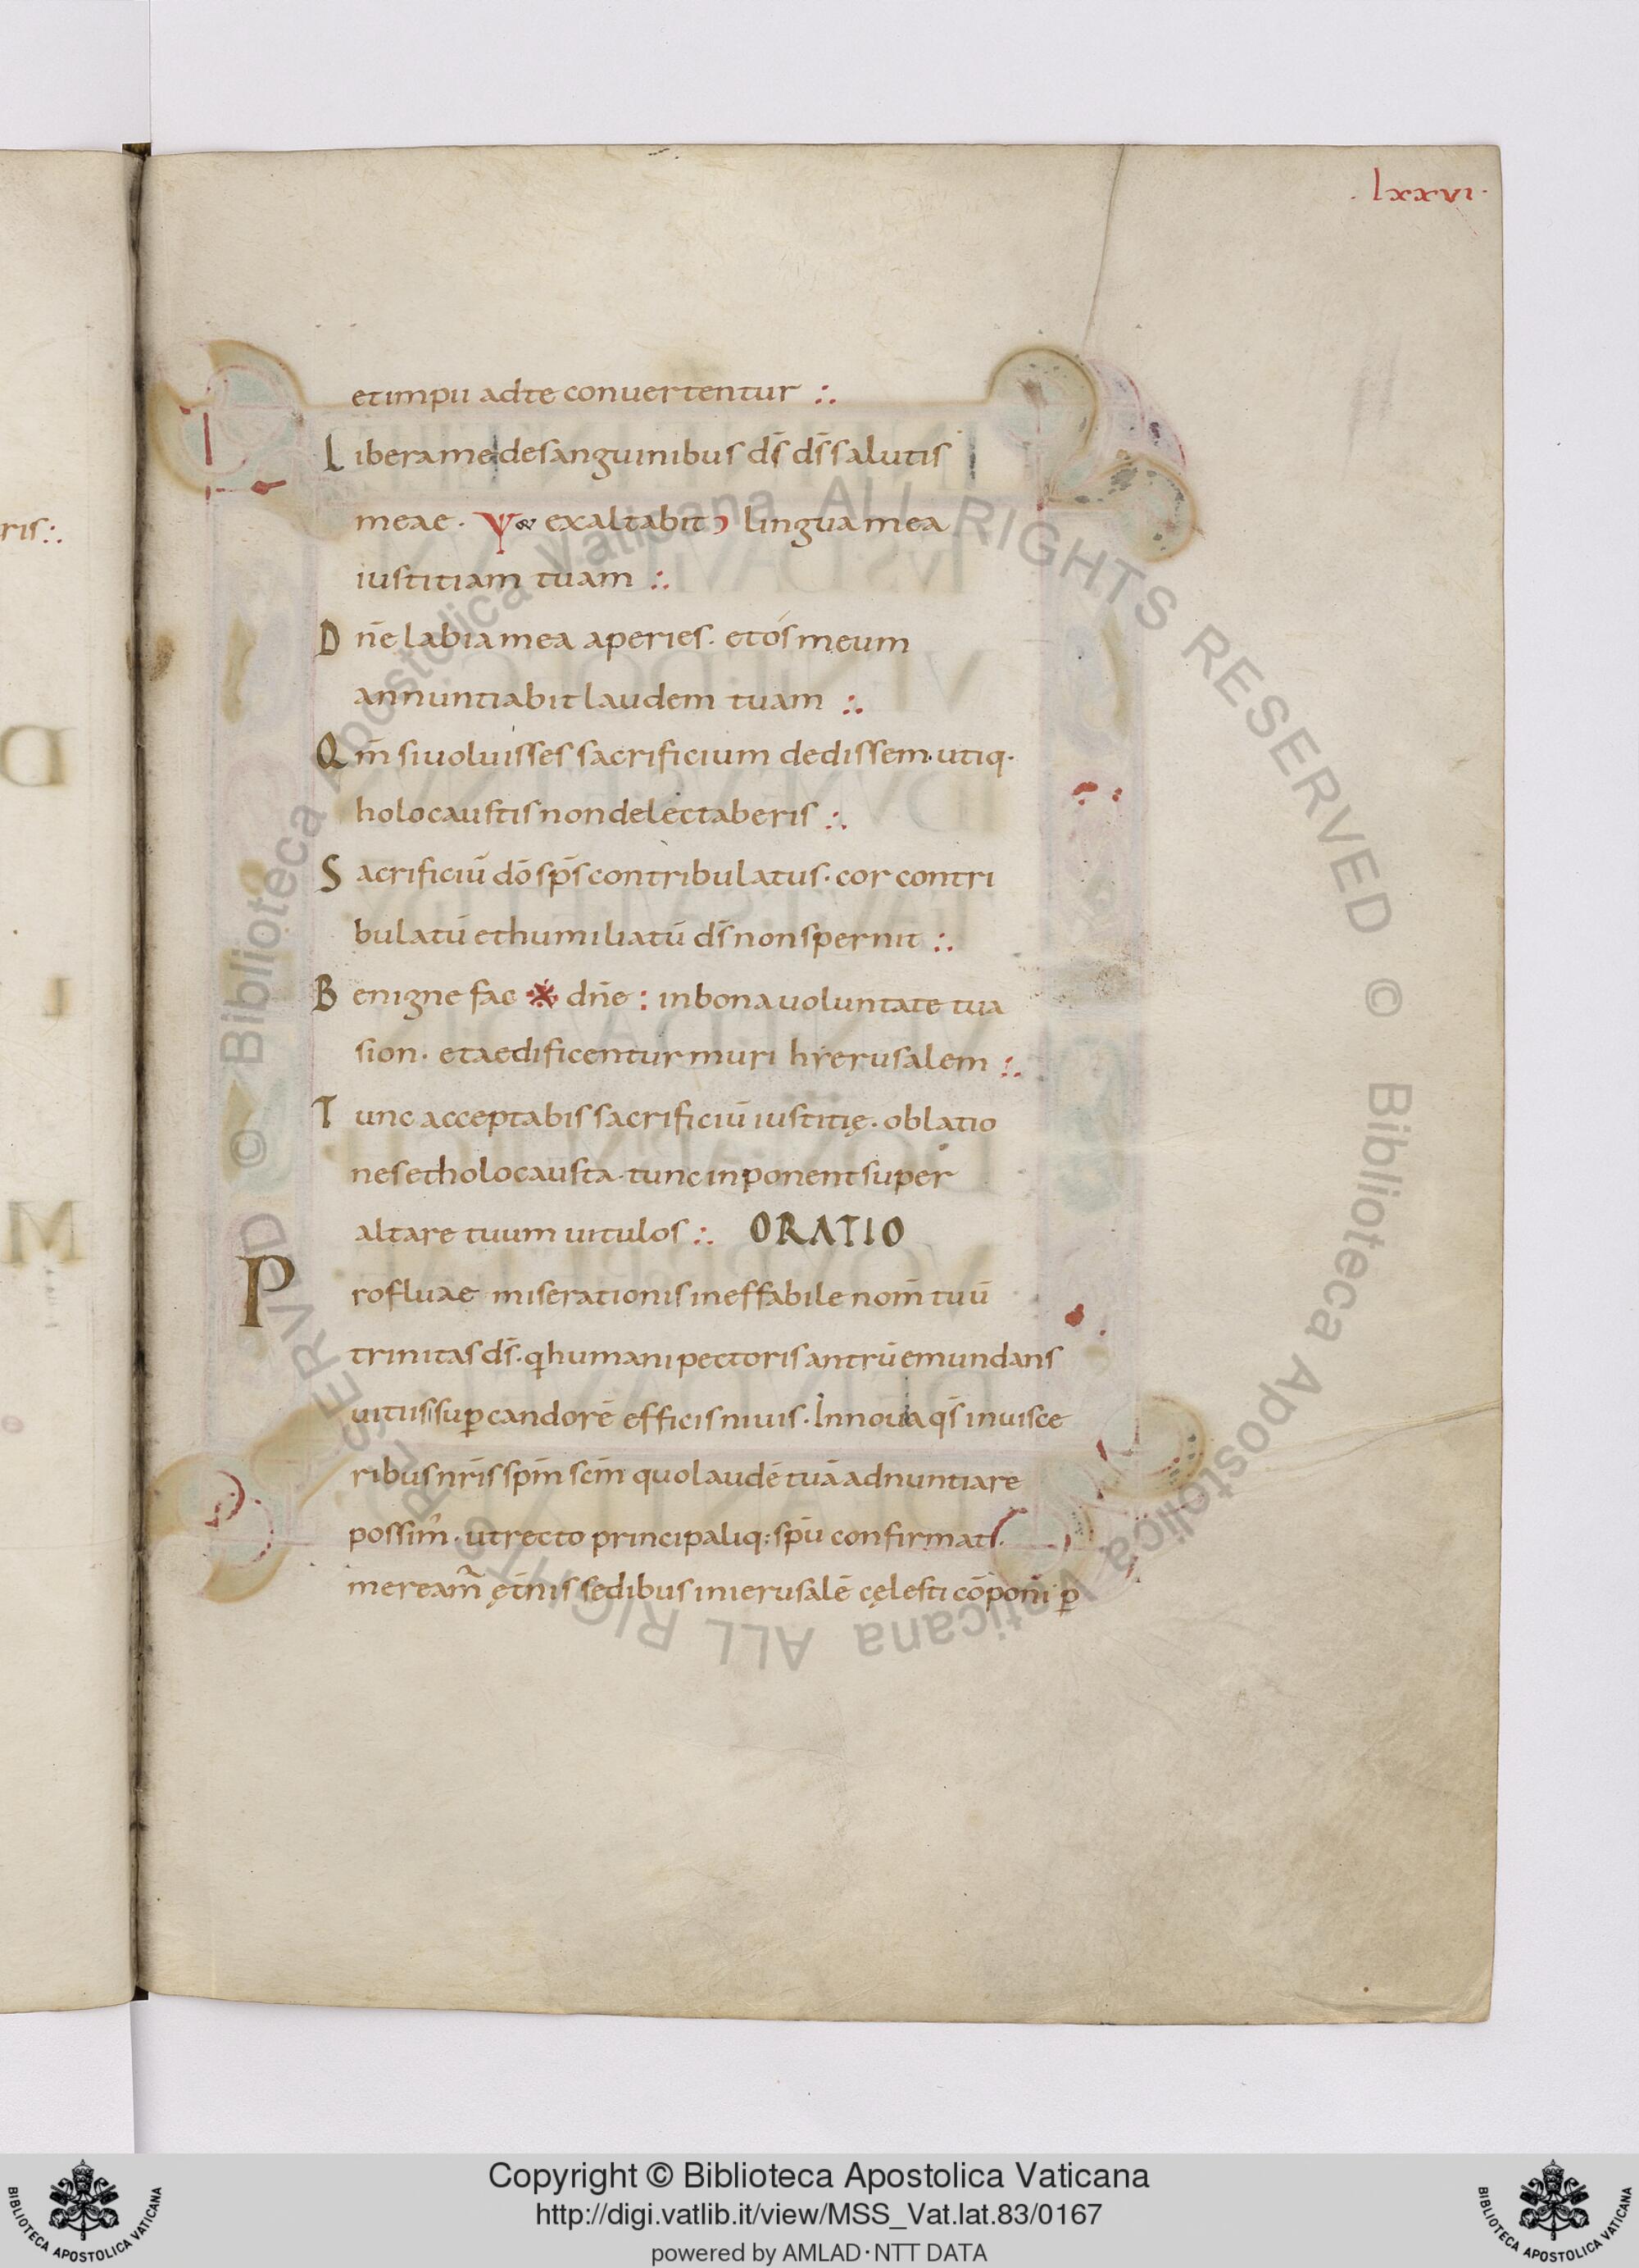 . lxxvi .
et impii ad te convertentur :.
Libera me de sanguinibus ds̄ ds̄ salutis
meae · & exaltabit lingua mea
iustitiam tuam :.
Dn̄e labia mea aperies · et os meum
annuntiabit laudem tuam :.
Qm̄ si uoluisses sacrificium dedissem · utiq·
holocaustis non delectaberis :.
Sacrificiū dō sp̄s contribulatus · cor contri
bulatū et humiliatū ds̄ non spernit :.
Benigne fac ※ dn̄e : in bona uoluntate tua
sion · et aedificentur muri hierusalem :.
Tunc acceptabis sacrificiū iustitię · oblatio
nes et holocausta · tunc inponent super
altare tuum uitulos :. ORATIO
Profluae miserationis ineffabile nom̄ tuū
trinitas ds̄ · q humani pectoris antrū emundans
uitiis sup candorē efficis niuis · Innoua qs̄ in uisce
ribus nr̄is sp̄m sc̄m quo laudē tuā adnuntiare
possim · ut recto principaliq: sp̄u confirmati ·
meream̄ ęt̄nis sedibus in ierusalē cęlesti cōponi p
ris :.
D
L
M
© Biblioteca Apostolica Vaticana ALL RIGHTS RESERVED © Biblioteca Apostolica Vaticana ALL RIGHTS RESERVED
BIBLIOTECA APOSTOLICA VATICANA
Copyright © Biblioteca Apostolica Vaticana
http://digi.vatlib.it/view/MSS_Vat.lat.83/0167
powered by AMLAD · NTT DATA
BIBLIOTECA APOSTOLICA VATICANA